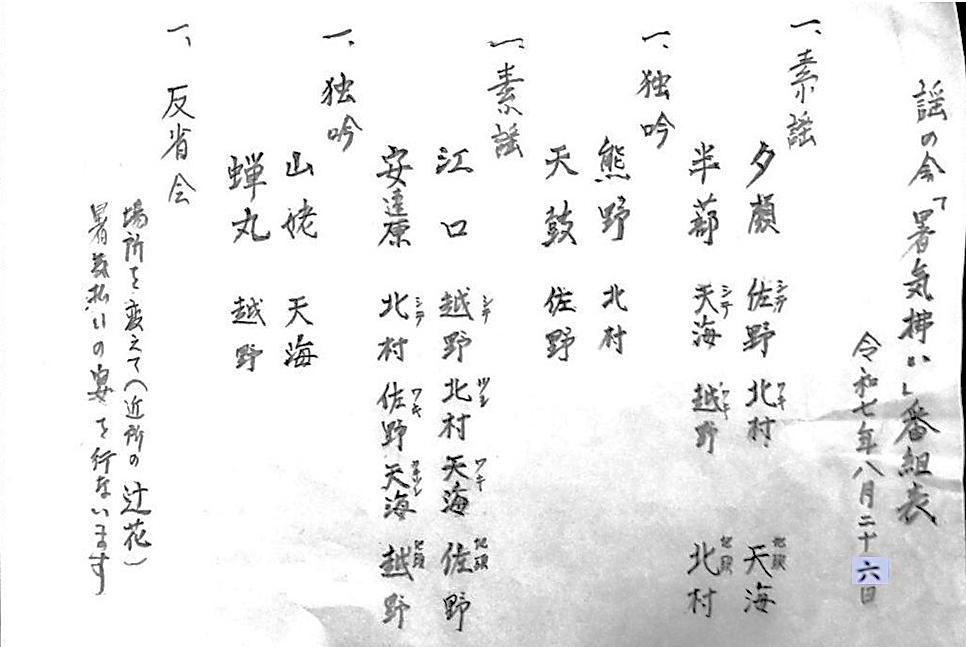 謡の会「暑気払い」番組表
令和七年八月二十六日
一、素謡
夕顔 シテ佐野 ワキ北村 地頭天海
半蔀 シテ天海 ワキ越野 地頭北村
一、独吟
熊野 北村
天鼓 佐野
一、素謡
江口 シテ越野 ツレ北村 ワキ天海 地頭佐野
安達原 シテ北村 ワキ佐野 ワキツレ天海 地頭越野
一、独吟
山姥 天海
蝉丸 越野
一、反省会
場所を変えて(近所の辻花)
暑気払いの宴を行ないます